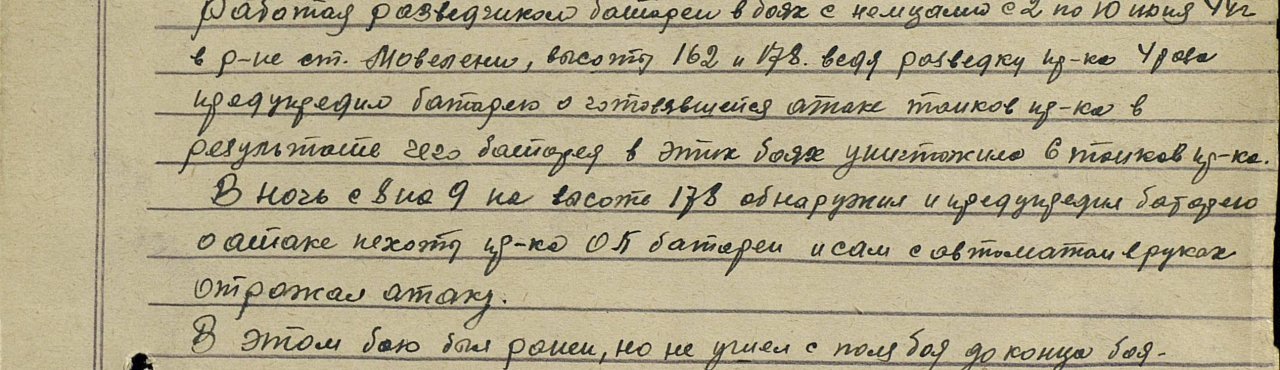 Работая разведчиком батареи в боях с немцами с 2 по 10 июня 44г
в р-не ст. Мовелени, высоты 162 и 178. ведя разведку пр-ка 4 раза
предупредил батарею о готовявшейся атаке танков пр-ка в
результате чего батарея в этих боях уничтожила 6 танков пр-ка.
В ночь с 8 на 9 на высоте 178 обнаружил и предупредил батарею
о атаке пехоты пр-ка ОП батареи и сам с автоматом в руках
отражал атаку.
В этом бою был ранен, но не ушел с поля боя до конца боя-